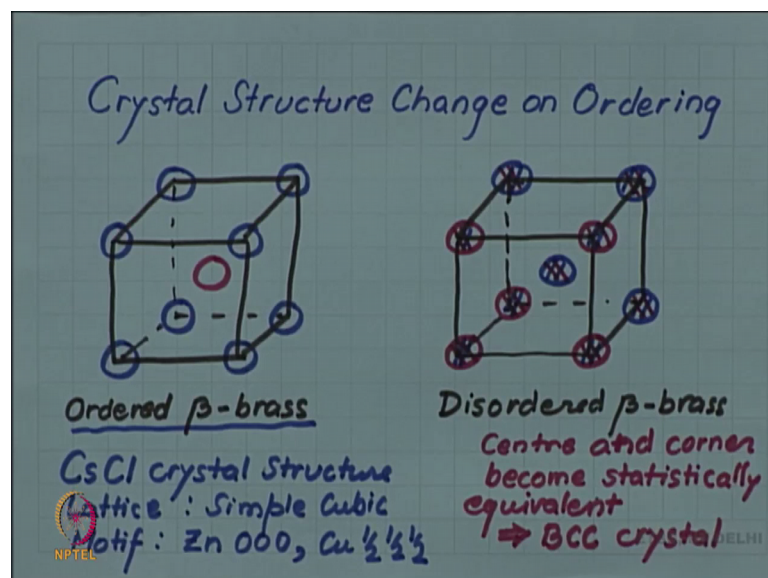 Crystal Structure Change on Ordering
Ordered β-brass
CsCl crystal Structure
Lattice : Simple Cubic
Motif : Zn 000, Cu ½ ½ ½
Disordered β-brass
Centre and corner
become statistically
equivalent
⇒ BCC crystal
NPTEL
DELHI